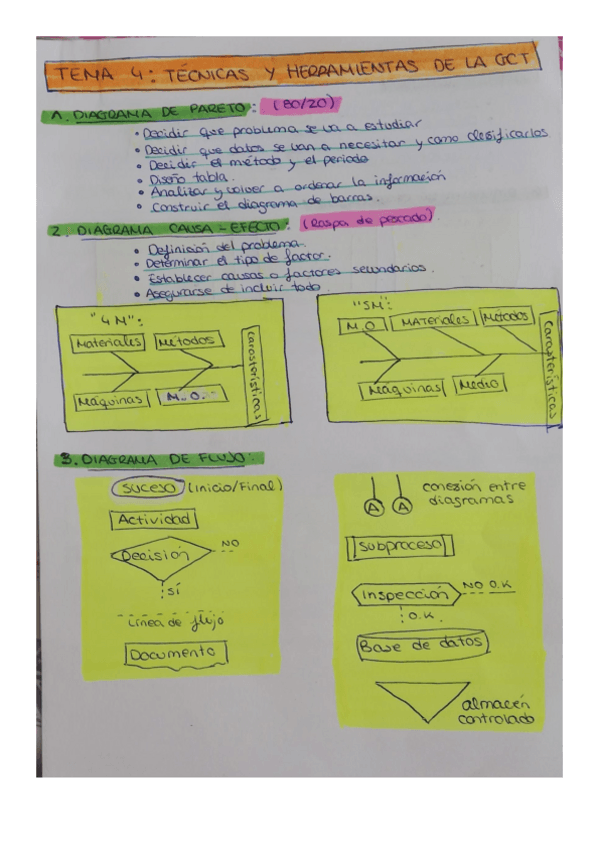 TEMA 4: TÉCNICAS Y HERRAMIENTAS DE LA GCT
1. DIAGRAMA DE PARETO: (80/20)
• Decidir que problema se va a estudiar
• Decidir que datos se van a necesitar y como clasificarlos
• Decidir el método y el periodo
• Diseño tabla.
• Analizar y volver a ordenar la información
• Construir el diagrama de barras.
2. DIAGRAMA CAUSA-EFECTO: (Raspa de pescado)
• Definición del problema.
• Determinar el tipo de factor.
• Establecer causas o factores secundarios.
• Asegurarse de incluir todo.
"4M":
Materiales Métodos
Máquinas M.O.
Características
"5M":
M.O MATERIALES Métodos
Máquinas Medio
Características
3. DIAGRAMA DE FLUJO:
SUCESO (Inicio/Final)
Actividad
Decisión NO
SÍ
Línea de flujo
Documento
A A conexión entre
diagramas
Subproceso
Inspección NO O.K
O.K.
Base de datos
almacén
controlado